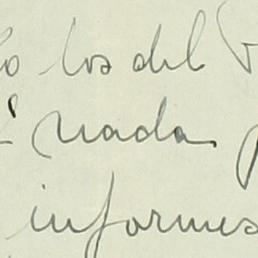 los del
nada
informes